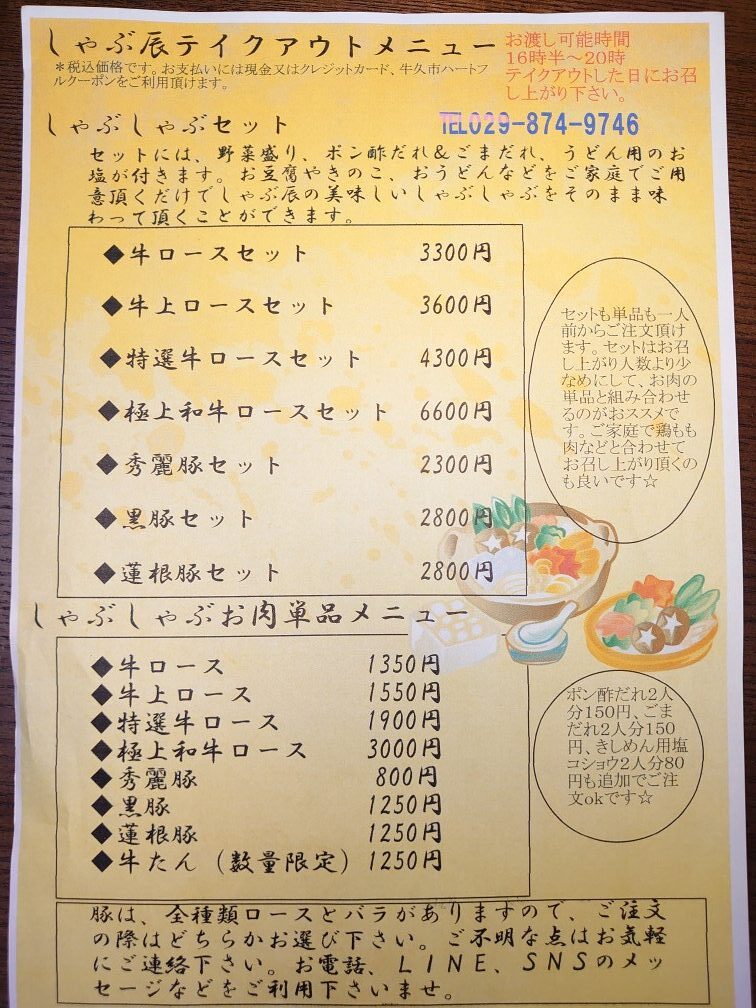 しゃぶ辰テイクアウトメニュー
お渡し可能時間
16時半～20時
テイクアウトした日にお召
し上がり下さい。
＊税込価格です。お支払いには現金又はクレジットカード、牛久市ハートフ
ルクーポンをご利用頂けます。
しゃぶしゃぶセット
TEL029-874-9746
セットには、野菜盛り、ポン酢だれ&ごまだれ、うどん用のお
塩が付きます。お豆腐やきのこ、おうどんなどをご家庭でご用
意頂くだけでしゃぶ辰の美味しいしゃぶしゃぶをそのまま味
わって頂くことができます。
◆牛ロースセット 3300円
◆牛上ロースセット 3600円
◆特選牛ロースセット 4300円
◆極上和牛ロースセット 6600円
◆秀麗豚セット 2300円
◆黒豚セット 2800円
◆蓮根豚セット 2800円
セットも単品も一人
前からご注文頂け
ます。セットはお召
し上がり人数より少
なめにして、お肉の
単品と組み合わせ
るのがおススメで
す。ご家庭で鶏もも
肉などと合わせて
お召し上がり頂くの
も良いです☆
しゃぶしゃぶお肉単品メニュー
◆牛ロース 1350円
◆牛上ロース 1550円
◆特選牛ロース 1900円
◆極上和牛ロース 3000円
◆秀麗豚 800円
◆黒豚 1250円
◆蓮根豚 1250円
◆牛たん（数量限定）1250円
ポン酢だれ2人
分150円、ごま
だれ2人分150
円、きしめん用塩
コショウ2人分80
円も追加でご注
文okです☆
豚は、全種類ロースとバラがありますので、ご注文
の際はどちらかお選び下さい。ご不明な点はお気軽
にご連絡下さい。お電話、ＬＩＮＥ、ＳＮＳのメッ
セージなどをご利用下さいませ。